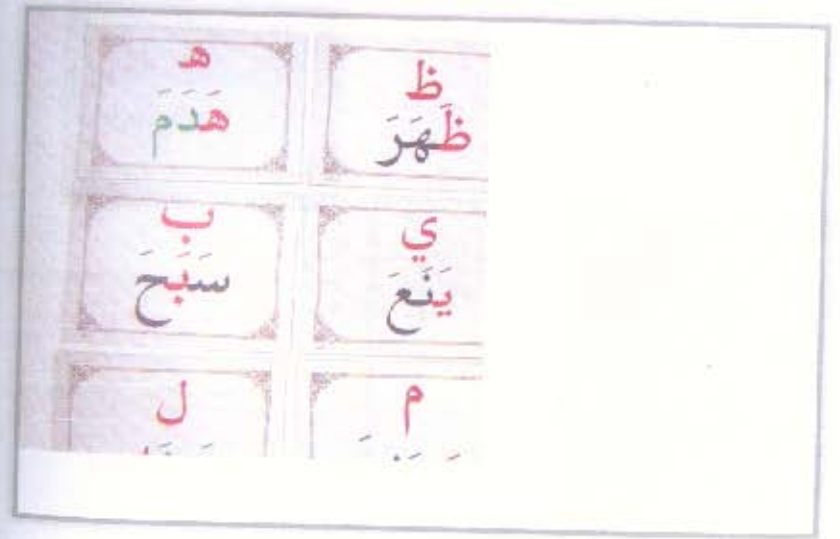 ظ
ظَهَرَ
ه
هَدَمَ
ي
يَنَعَ
ب
سَبَحَ
م
ل